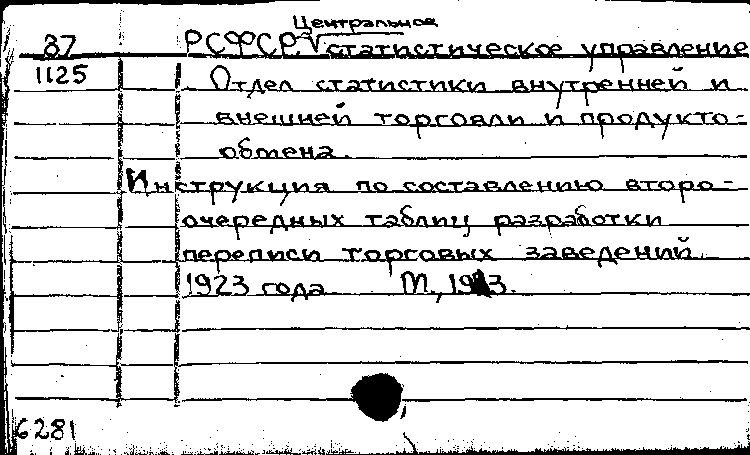 Центральное
37 РСФСР. √ статистическое управление
1125 Отдел статистики внутренней и
внешней торговли и продукто=
обмена.
Инструкция по составлению второ=
очередных таблиц разработки
переписи торговых заведений
1923 года М., 1923.
6281